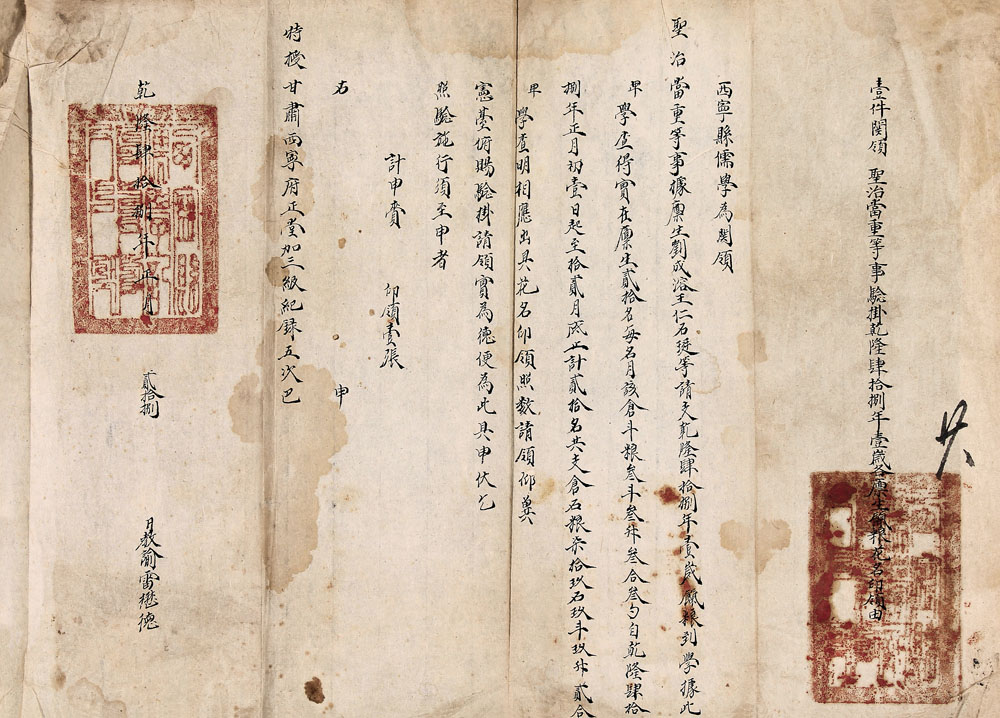 壹件関領 聖治當重等事驗掛乾隆肆拾捌年壹歲各廩生餼粮花名印領由
西寧縣儒學為関領
聖治當重等事據廩生劉成浴王仁石珽等請支乾隆肆拾捌年壹歲餼粮到學據此
卑學查得實在廩生貳拾名每名月該倉斗粮叁斗叁升叁合叁勺自乾隆肆拾
捌年正月初壹日起至拾貳月底止計貳拾名共支倉石粮柒拾玖石玖斗玖升貳合
卑學查明相應出具花名印領照数請領仰冀
憲臺俯賜驗掛請領實為德便為此具申伏乞
照驗施行須至申者
計申賫 印領壹張
右 申
特授甘肅西寧府正堂加三級紀録五次巴
乾隆肆拾捌年正月 貳拾捌 日教諭雷懋德